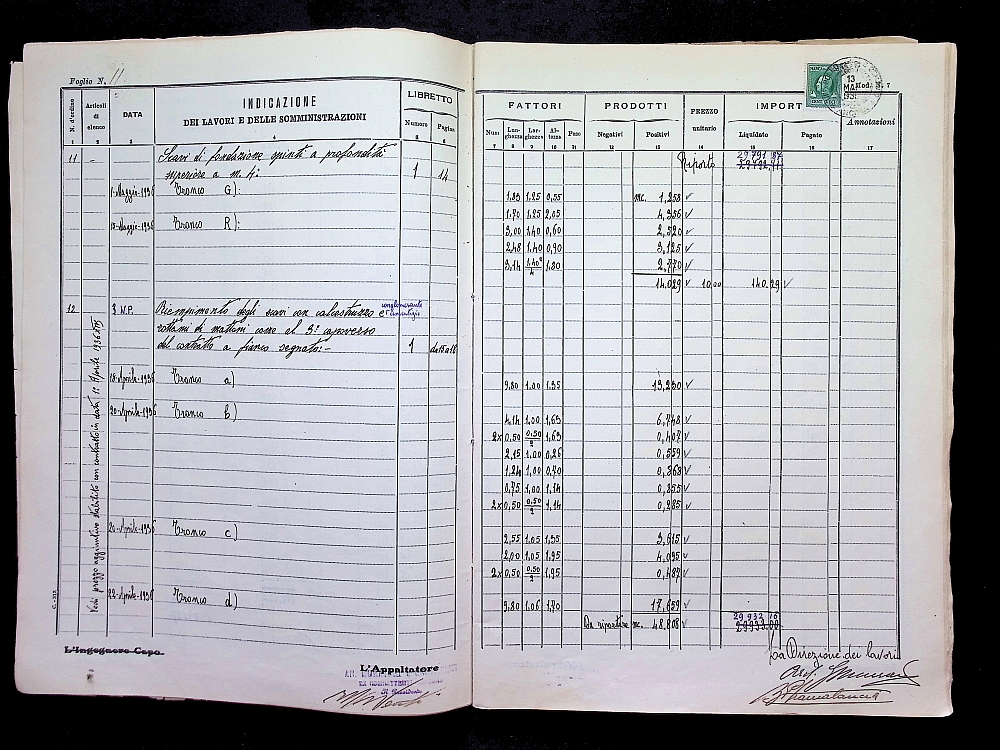 Foglio N. 11
N. d'ordine
Articoli di elenco
DATA
INDICAZIONE
DEI LAVORI E DELLE SOMMINISTRAZIONI
LIBRETTO
Numero
Pagina
1 2 3 4 5 6
11 - Scavi di fondazione spinti a profondità
superiore a m. 4:
1 14
1-Maggio-1936 Tronco G):
13-Maggio-1936 Tronco R):
12 3 N.P. Riempimento degli scavi con calcestruzzo e
conglomerato
rottami di mattoni come al 3° capoverso
del contratto a fianco segnato:-
1 da 15 a 18
18-Aprile-1936 Tronco a)
20-Aprile-1936 Tronco b)
20-Aprile-1936 Tronco c)
22-Aprile-1936 Tronco d)
Vedi prezzo aggiuntivo stabilito con contratto in data 1° Aprile 1936 XIV
L'Ingegnere Capo
L'Appaltatore
Mod. N. 7
FATTORI
PRODOTTI
PREZZO unitario
IMPORT
Annotazioni
Num
Lunghezza
Larghezza
Altezza
Peso
Negativi
Positivi
Liquidato
Pagato
7 8 9 10 11 12 13 14 15 16 17
Riporto 29791,87
29792,71
1,83 1,25 0,55 mc. 1,258
1,70 1,25 2,05 4,356
3,00 1,40 0,60 2,520
2,48 1,40 0,90 3,125
3,14 1,40²/4 1,80 2,770
14,029 10,00 140,29
9,80 1,00 1,35 13,230
4,14 1,00 1,63 6,748
2x 0,50 0,50/2 1,63 0,407
2,15 1,00 0,26 0,559
1,24 1,00 0,70 0,868
0,75 1,00 1,14 0,855
2x 0,50 0,50/2 1,14 0,285
2,55 1,05 1,35 3,615
2,00 1,05 1,95 4,095
2x 0,50 0,50/2 1,95 0,487
9,80 1,06 1,70 17,659
Da riportare mc. 48,808 29932,16
29933,00
La Direzione dei lavori